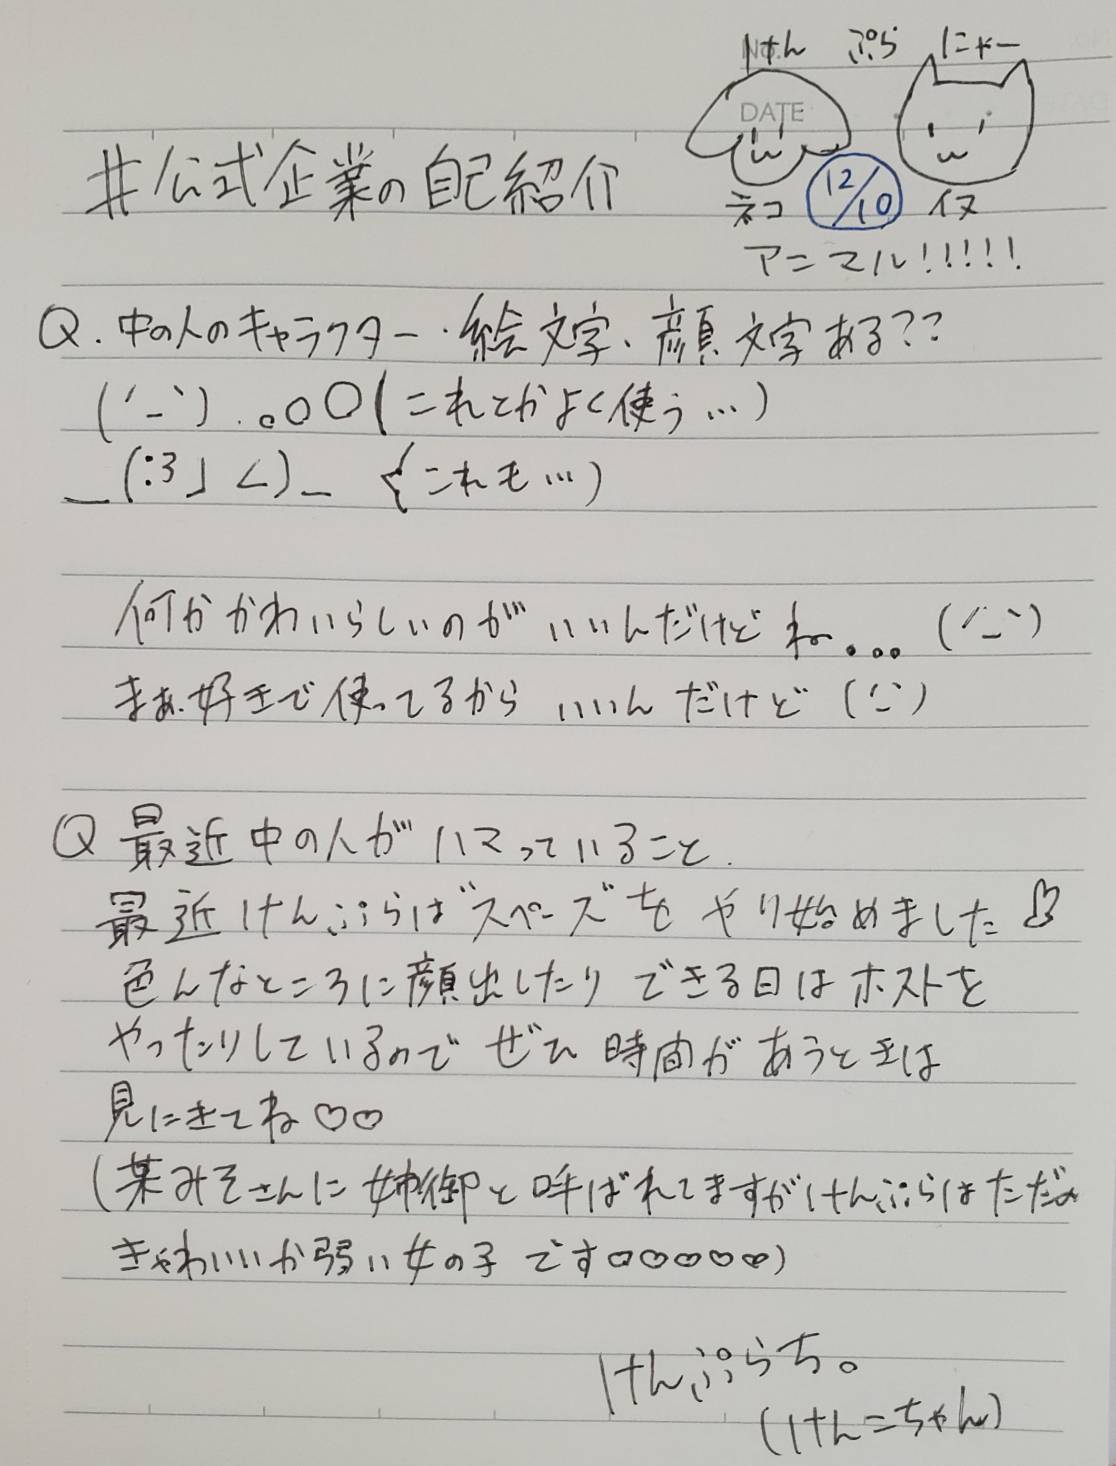 けん ぷら にゃー
No.
DATE
#公式企業の自己紹介
12/10
ネコ イヌ
アニマル!!!!!
Q.中の人のキャラクター・絵文字、顔文字ある??
(´-`).｡oO(これとかよく使う…)
_(:3」∠)_ (これも…)
何かかわいらしいのがいいんだけどねー... (´-`)
まぁ好きで使ってるからいいんだけど(´-`)
Q 最近中の人がハマっていること.
最近けんぷらはスペースをやり始めました♡
色んなところに顔出したりできる日はホストを
やったりしているのでぜひ時間があうときは
見にきてね♡♡
(某みそさんに姉御と呼ばれてますがけんぷらはただの
きゃわいいか弱い女の子です♡♡♡♡♡)
けんぷらち。
(けんこちゃん)